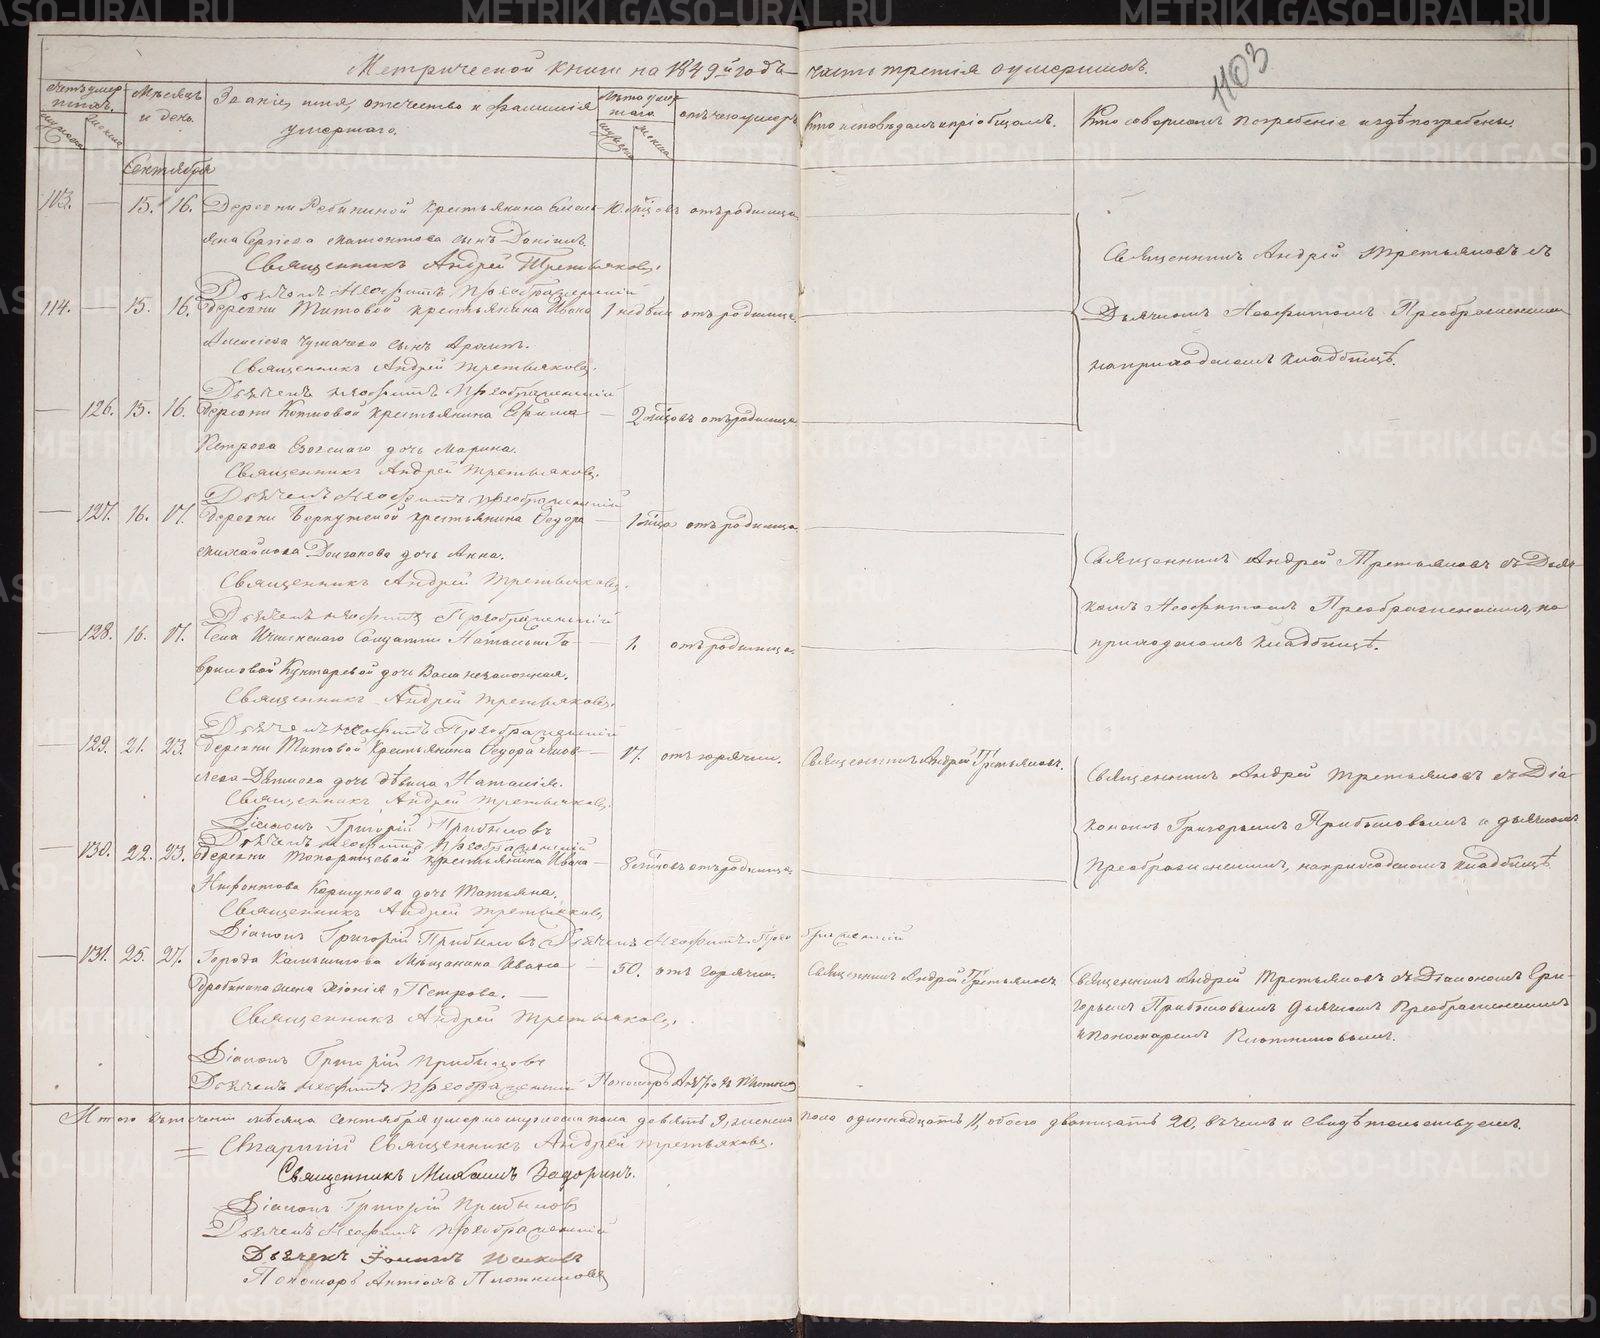 Метрической книги на 1849й годъ часть третія о умершихъ.
1103
Счетъ умершихъ.
мужеска
женска
Мѣсяцъ и день.
Званіе, имя, отечество и фамилія умершаго.
Лѣта умершаго
мужеска
женска
отъ чего умеръ
Кто исповѣдалъ и пріобщалъ.
Кто совершалъ погребеніе и гдѣ погребены.
Сентября
113. — 15. 16. Деревни Рябининой крестьянина Емель- 10. мѣсцовъ отъ родимца
яна Сергѣева Мамонтова сынъ Даніилъ.
Священникъ Андрей Третьяковъ.
Дьячекъ Неофитъ Преображенскій
Священникъ Андрей Третьяковъ съ
Дьячкомъ Неофитомъ Преображенскимъ
на приходскомъ кладбищѣ.
114. — 15. 16. Деревни Титовой крестьянина Ивана 1 недѣли отъ родимца.
Алексѣева Чумачева сынъ
Священникъ Андрей Третьяковъ.
Дьячекъ Неофитъ Преображенскій
— 126. 15. 16. Деревни Котковой крестьянина Ефима — 2 мѣсцовъ отъ родимца
Петрова дочь Марина.
Священникъ Андрей Третьяковъ.
Дьячекъ Неофитъ Преображенскій
— 127. 16. 17. Деревни крестьянина Ѳедора — 1 мѣсца отъ родимца
Михайлова Долганова дочь Анна.
Священникъ Андрей Третьяковъ.
Дьячекъ Неофитъ Преображенскій
Священникъ Андрей Третьяковъ съ Дьяч-
комъ Неофитомъ Преображенскимъ, на
приходскомъ кладбищѣ.
— 128. 16. 17. Села Солдатки Натальи Га- — 1. отъ родимца.
вриловой дочь незаконная.
Священникъ Андрей Третьяковъ.
Дьячекъ Неофитъ Преображенскій
— 129. 21. 23. Деревни Титовой Крестьянина Ѳедора Яков- — 17. отъ горячки. Священникъ Андрей Третьяковъ.
лева дочь дѣвица Наталія.
Священникъ Андрей Третьяковъ.
Діаконъ Григорій Прибыловъ
Дьячекъ Неофитъ Преображенскій
Священникъ Андрей Третьяковъ съ Діа-
кономъ Григорьемъ Прибыловымъ и дьячкомъ
Преображенскимъ, на приходскомъ кладбищѣ
— 130. 22. 23. Деревни крестьянина Ивана — 8 мѣсцовъ отъ родимца
Нифонтова Коршунова дочь Татьяна.
Священникъ Андрей Третьяковъ
Діаконъ Григорій Прибыловъ Дьячекъ Неофитъ Преображенскій
— 131. 25. 27. Города Камышлова Мѣщанина Ивана — 50. отъ горячки. Священникъ Андрей Третьяковъ
Дробинина жена Хіонія Петрова. —
Священникъ Андрей Третьяковъ.
Діаконъ Григорій Прибыловъ
Дьячекъ Неофитъ Преображенскій Пономарь Плотниковъ
Священникъ Андрей Третьяковъ съ Діакономъ Гри-
горьемъ Прибыловымъ Дьячкомъ Преображенскимъ
и пономаремъ Плотниковымъ.
Итого въ теченіи мѣсяца Сентября умерло мужеска пола девять 9, женска пола одиннадцать 11, обоего двадцать 20, въ чемъ и свидѣтельствуемъ.
= Старшій Священникъ Андрей Третьяковъ.
Священникъ Михаилъ Задоринъ.
Діаконъ Григорій Прибыловъ
Дьячекъ Неофитъ Преображенскій
Дьячекъ
Пономарь Плотниковъ
METRIKI.GASO-URAL.RU